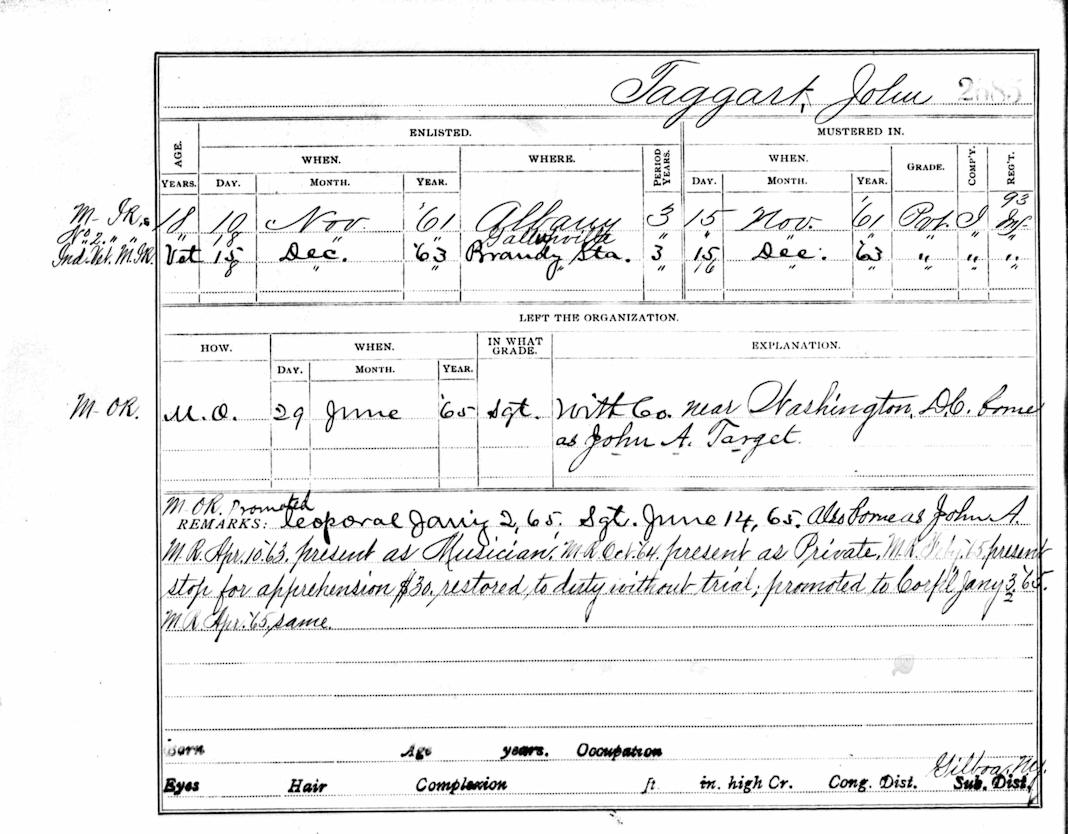 Taggart, John 2685
ENLISTED. MUSTERED IN.
AGE. WHEN. WHERE. PERIOD YEARS. WHEN. GRADE. COMP'Y. REG'T.
YEARS. DAY. MONTH. YEAR. DAY. MONTH. YEAR.
93
M-IR. 18 10 Nov. '61 Albany 3 15 Nov. '61 Pvt. I Inf.
No 2. " " " 18 " " Gallupville " " " "
Ind. Vet. M. IR. Vet 15 Dec. '63 Brandy Sta. 3 15 Dec. '63 " " "
8 " " " " 16 " " " " "
LEFT THE ORGANIZATION.
HOW. WHEN. IN WHAT GRADE. EXPLANATION.
DAY. MONTH. YEAR.
M-OR. M.O. 29 June '65 Sgt. With Co. near Washington, D.C. borne
as John A. Target.
M-OR. Promoted
REMARKS: Corporal Jan'y 2, 65. Sgt. June 14, 65. Also borne as John A.
M.R. Apr. 10 '63, present as "Musician", M.R. Oct. '64, present as Private, M.R. Feb'y '65, present
stop for apprehension $30, restored to duty without trial; promoted to Corp'l Jany 3/2 '65.
M.R. Apr. '65, same.
Born Age years. Occupation
Gilboa, N.Y.
Eyes Hair Complexion ft in. high Cr. Cong. Dist. Sub. Dist.